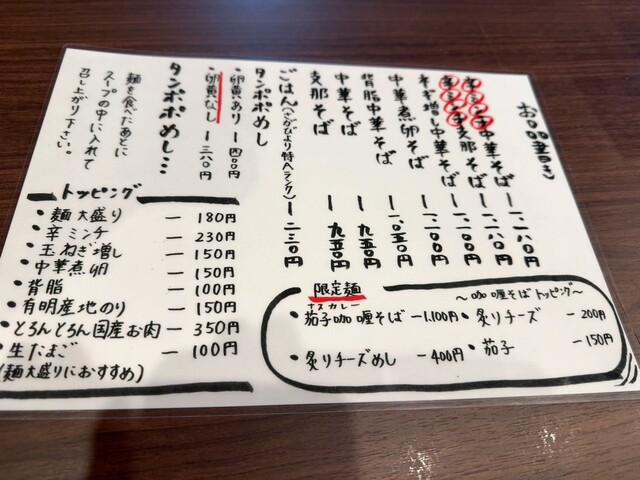 お品書き
辛ミンチ中華そば ー 一.一八〇円
辛ミンチ支那そば ー 一.一八〇円
ねぎ増し中華そば ー 一.一〇〇円
中華煮卵そば ー 一.一〇〇円
背脂中華そば ー 一.〇五〇円
中華そば ー 九五〇円
支那そば ー 九五〇円
ごはん(さがびより特Aランク) ー 二三〇円
タンポポめし
・卵黄あり ー 四〇〇円
・卵黄なし ー 三八〇円
タンポポめし…
麺を食べたあとに
スープの中に入れて
召し上がり下さい。
トッピング
・麺大盛り ー 180円
・辛ミンチ ー 230円
・玉ねぎ増し ー 150円
・中華煮卵 ー 150円
・背脂 ー 100円
・有明産地のり ー 150円
・とろんとろん国産お肉 ー 350円
・生たまご ー 100円
(麺大盛りにおすすめ)
限定麺
ナスカレー
・茄子咖喱そば ー 1.100円
・炙りチーズめし ー 400円
〜咖喱そばトッピング〜
・炙りチーズ ー 200円
・茄子 ー 150円